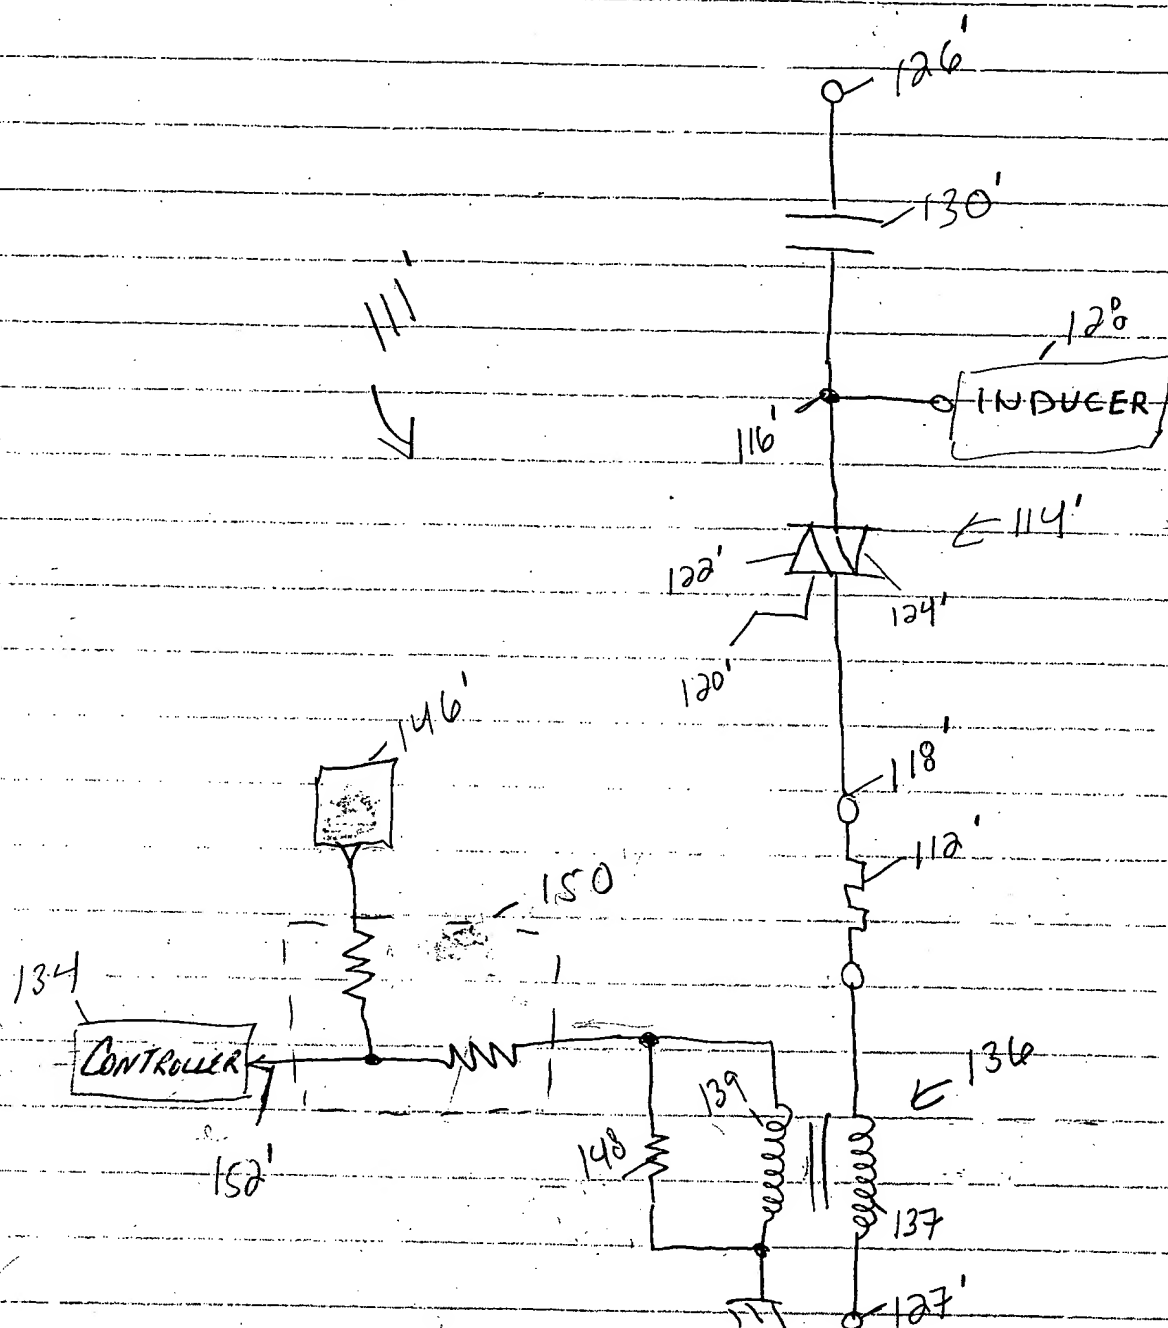 126'
130'
111'
128
INDUCER
116'
114'
122'
124'
120'
146'
118'
112'
150
134
CONTROLLER
136
139
148
152'
137
127'